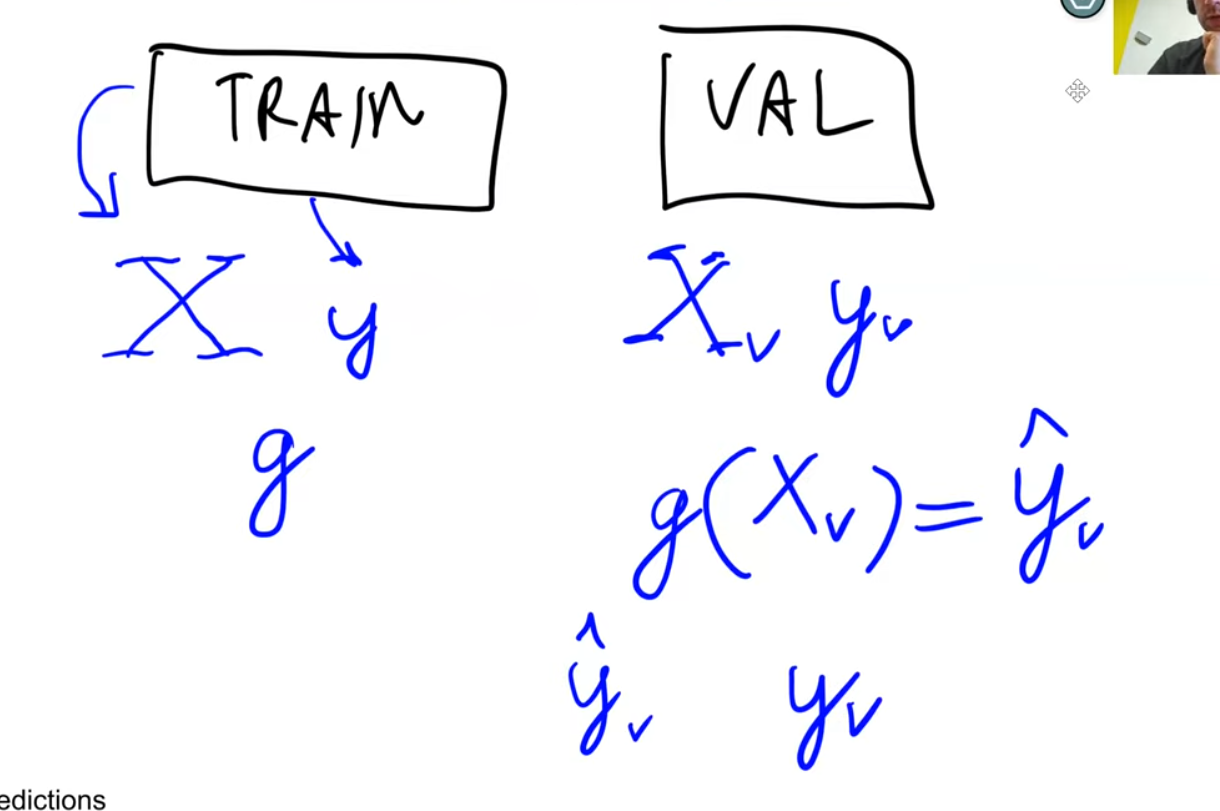 TRAIN VAL
X y Xᵥ yᵥ
g
g(Xᵥ) = ŷᵥ
ŷᵥ yᵥ
edictions